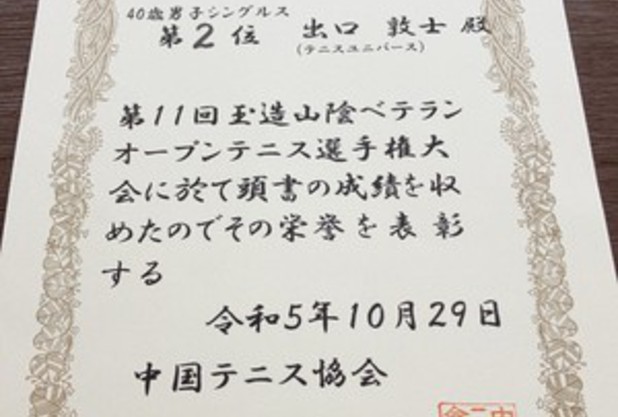 40歳男子シングルス
第2位 出口 敦士 殿
(テニスユニバース)
第11回玉造山陰ベテラン
オープンテニス選手権大
会に於て頭書の成績を収
めたのでその栄誉を表彰
する
令和5年10月29日
中国テニス協会